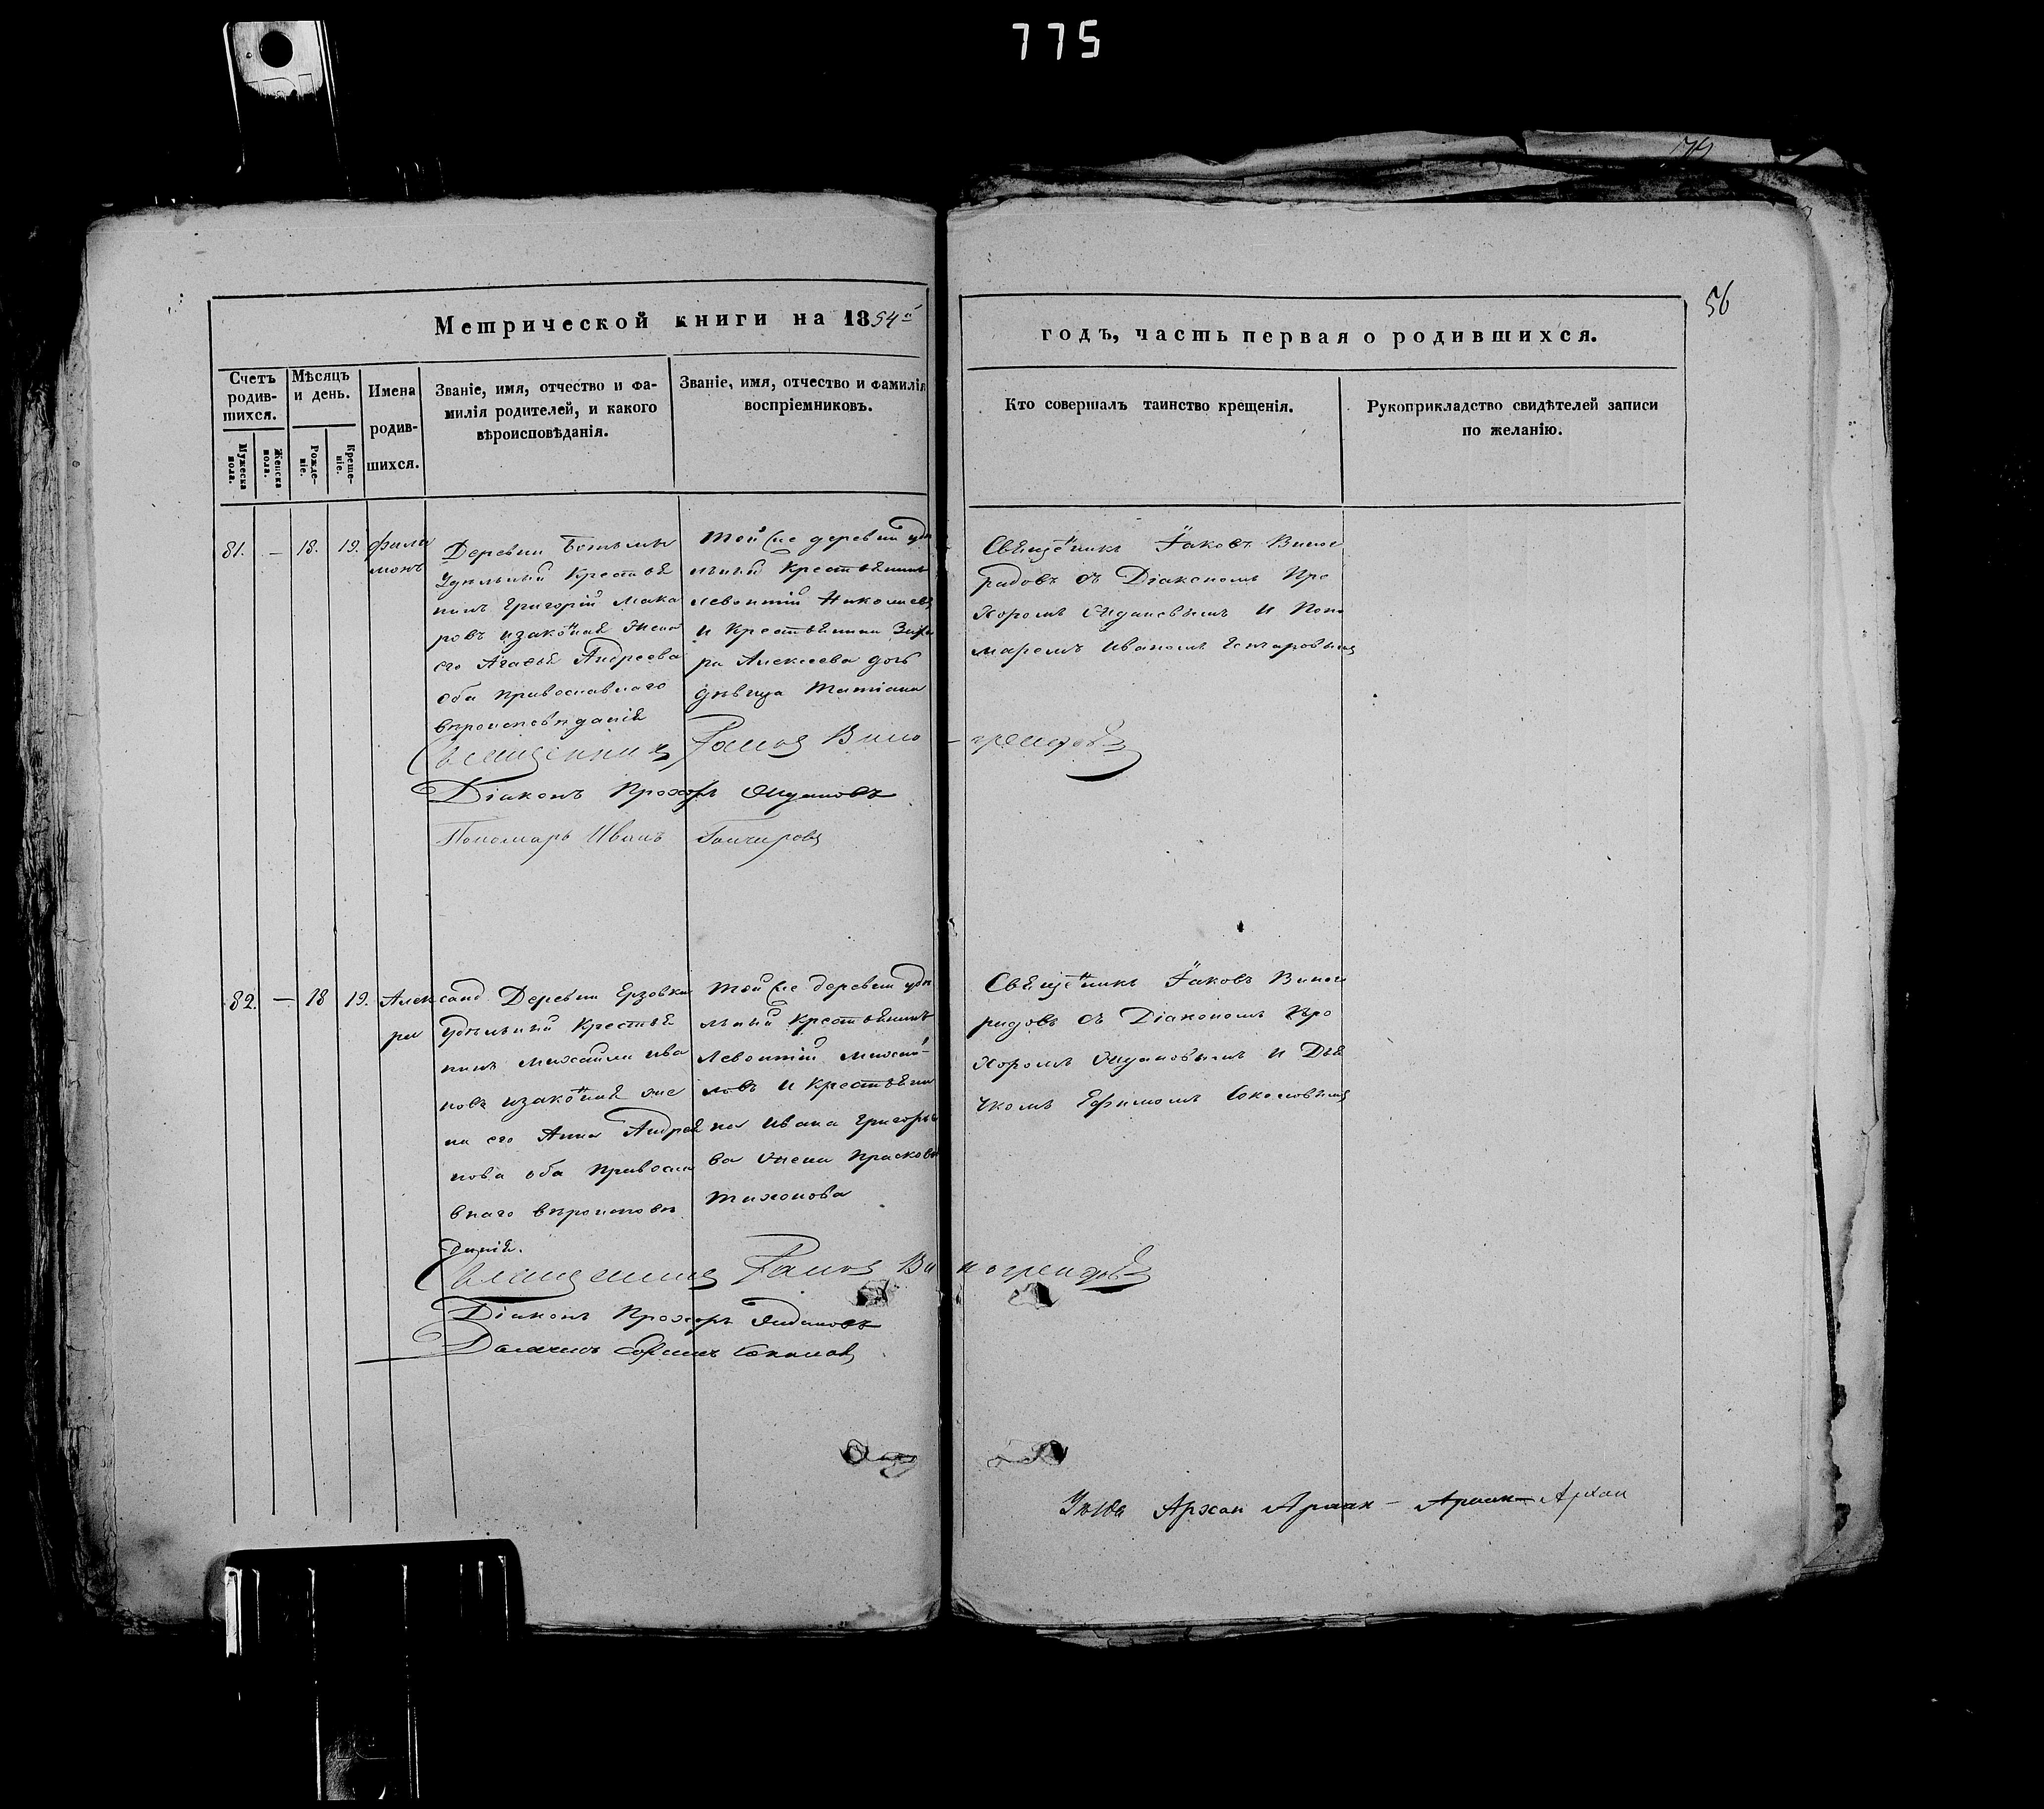 775
79
56
Метрической книги на 1854й
годъ, часть первая о родившихся.
Счетъ родив-шихся.
Мужеска пола.
Женска пола.
Мѣсяцъ и день.
Рожде-ніе.
Креще-ніе.
Имена родив-шихся.
Званіе, имя, отчество и фа-
милія родителей, и какого
вѣроисповѣданія.
Званіе, имя, отчество и фамилія
воспріемниковъ.
Кто совершалъ таинство крещенія.
Рукоприкладство свидѣтелей записи
по желанію.
81. — 18. 19. Фили
монъ
Деревни
Удѣльный Крестья
нинъ Григорій Мака
ровъ изакон̃ная жена
его Агафья Андреева
оба православнаго
вѣроисповѣданія
Той же деревни удѣ
льный Крестьянинъ
Левонтій Николаевъ
и Крестьянина Заха
ра Алексеева дочь
дѣвица Татіана
Свящѐнникъ Іаковъ Виног
радовъ съ Діакономъ Про
хоромъ Ждановымъ и Поно
маремъ Иваномъ Гончаровымъ
Священникъ Іаковъ Вино-градовъ
Діаконъ Прохоръ Ждановъ
Пономарь Иванъ Гончаровъ
82. — 18 19. Александ
ра
Деревни Ерзовки
Удѣльный Крестья
нинъ Михайла Ива
новъ изакон̃ная же
на его Анна Андрея
нова оба Правосла
внаго вѣроисповѣ
данія.
Той же деревни удѣ
льный Крестьянинъ
Левонтій Михай-
ловъ и Крестьяни
на Ивана Григорье
ва жена Прасковья
Тихонова
Свящѐнникъ Іаковъ Виног
радовъ съ Діакономъ Про
хоромъ Ждановымъ и Дья
чкомъ Ефимомъ Соколовымъ
Священникъ Іаковъ Виноградовъ
Діаконъ Прохоръ Ждановъ
Дьячекъ Ефимъ Соколовъ
Архан